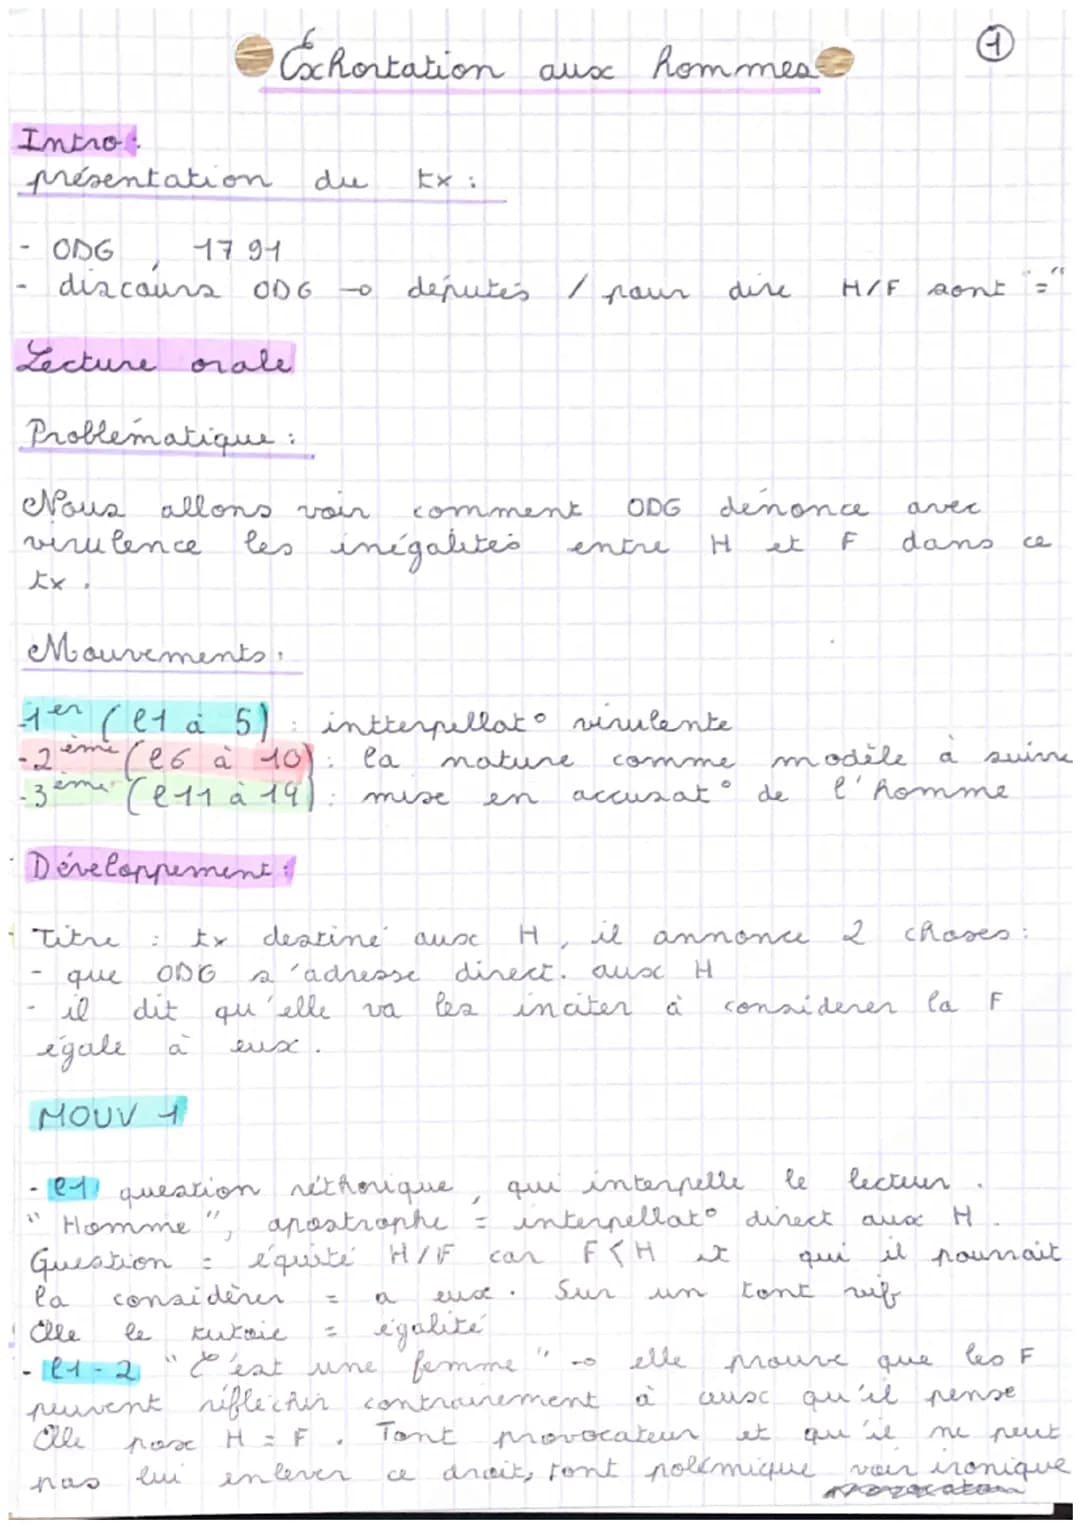 Exhortation aux hommes
1
Intro :
présentation du tx :
- ODG, 1791
- discours ODG → députés / pour dire H/F sont "="
Lecture orale
Problématique :
Nous allons voir comment ODG dénonce avec
virulence les inégalités entre H et F dans ce
tx.
Mouvements :
-1er (l1 à 5) : intterpellat° virulente
-2ème (l6 à 10) : la nature comme modèle à suivre
-3ème (l11 à 19) : mise en accusat° de l'homme
Développement :
Titre : tx destiné aux H, il annonce 2 choses :
- que ODG s'adresse direct. aux H
- il dit qu'elle va les inciter à considérer la F
égale à eux.
MOUV 1
- l1 question réthorique, qui interpelle le lecteur.
"Homme", apostrophe = interpellat° direct aux H.
Question = équité H/F car F<H et qui il pourrait
la considèrer = a eux. Sur un tont vif
Elle le tutoie = égalité
- l1-2 "C'est une femme" → elle prouve que les F
peuvent réflechir contrairement à ceux qu'il pense
Elle pose H = F. Tont provocateur et qu'il ne peut
pas lui enlever ce droit, tont polémique voir ironique